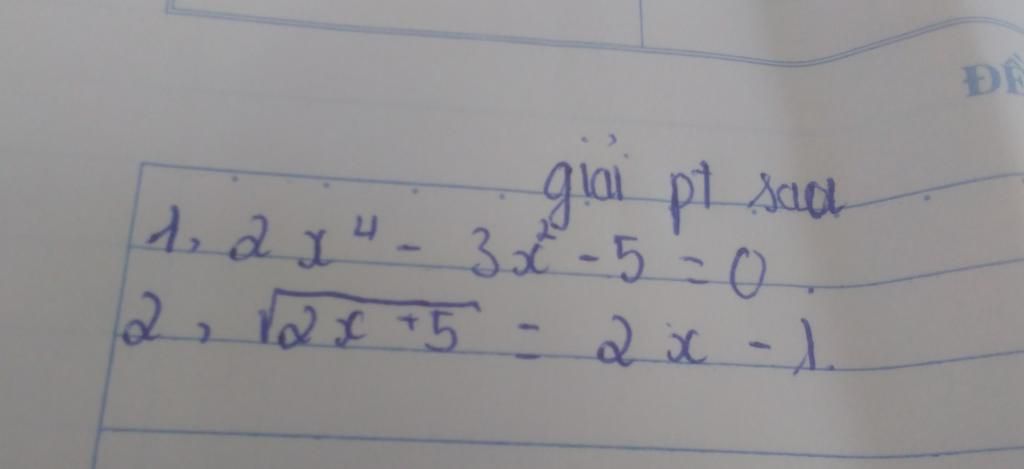 ĐỀ
giải pt sau
1, 2x⁴ - 3x² - 5 = 0.
2, √(2x + 5) = 2x - 1.